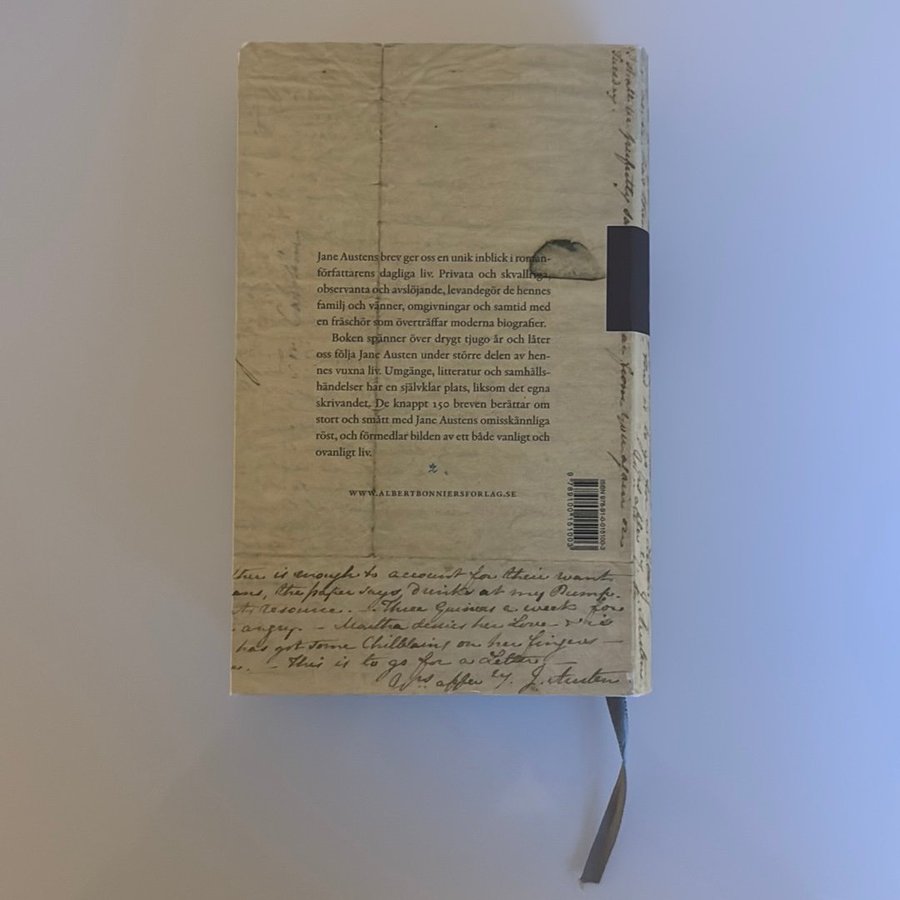 Jane Austens brev ger oss en unik inblick i roman-
författarens dagliga liv. Privata och skvallriga,
observanta och avslöjande, levandegör de hennes
familj och vänner, omgivningar och samtid med
en fräschör som överträffar moderna biografier.
Boken spänner över drygt tjugo år och låter
oss följa Jane Austen under större delen av hen-
nes vuxna liv. Umgänge, litteratur och samhälls-
händelser har en självklar plats, liksom det egna
skrivandet. De knappt 150 breven berättar om
stort och smått med Jane Austens omisskännliga
röst, och förmedlar bilden av ett både vanligt och
ovanligt liv.
WWW.ALBERTBONNIERSFORLAG.SE
ISBN 978-91-0-015100-3
9789100151003
is enough to account for their want
the paper says, drinks at my Pump.
resource. - Three Guineas a week for
angry. - Martha desires her Love - & is
has got some Chilblains on her fingers -
- This is to go for a Letter. -
Yrs affec ly. J. Austen
shall be perfectly
Tuesday.
from you again on